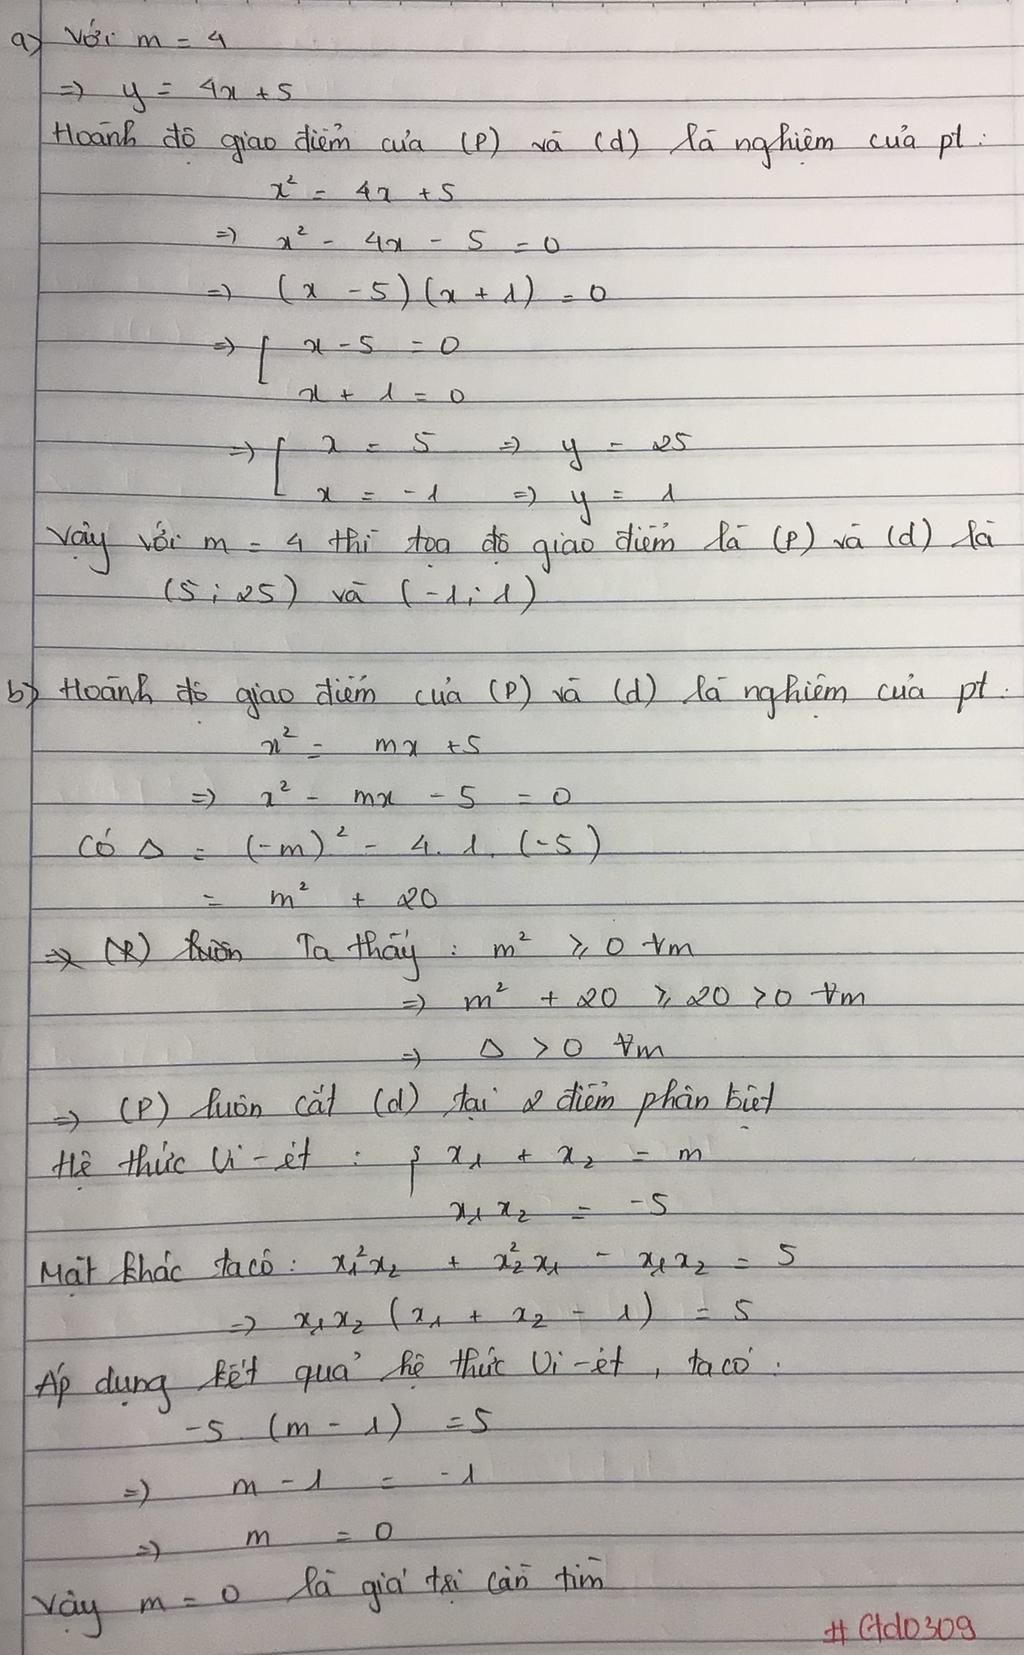 a) Với m = 4
=> y = 4x + 5
Hoành độ giao điểm của (P) và (d) là nghiệm của pt:
x² = 4x + 5
=> x² - 4x - 5 = 0
=> (x - 5)(x + 1) = 0
=> [ x - 5 = 0
x + 1 = 0
=> [ x = 5 => y = 25
x = -1 => y = 1
Vậy với m = 4 thì tọa độ giao điểm là (P) và (d) là
(5; 25) và (-1; 1)
b) Hoành độ giao điểm của (P) và (d) là nghiệm của pt:
x² = mx + 5
=> x² - mx - 5 = 0
Có Δ = (-m)² - 4. 1. (-5)
= m² + 20
=> luôn Ta thấy: m² ⩾ 0 ∀m
=> m² + 20 ⩾ 20 > 0 ∀m
=> Δ > 0 ∀m
=> (P) luôn cắt (d) tại 2 điểm phân biệt
Hệ thức Vi-ét: { x₁ + x₂ = m
x₁x₂ = -5
Mặt khác ta có: x₁²x₂ + x₂²x₁ - x₁x₂ = 5
=> x₁x₂ (x₁ + x₂ - 1) = 5
Áp dụng kết quả hệ thức Vi-ét, ta có:
-5 (m - 1) = 5
=> m - 1 = -1
=> m = 0
Vậy m = 0 là giá trị cần tìm